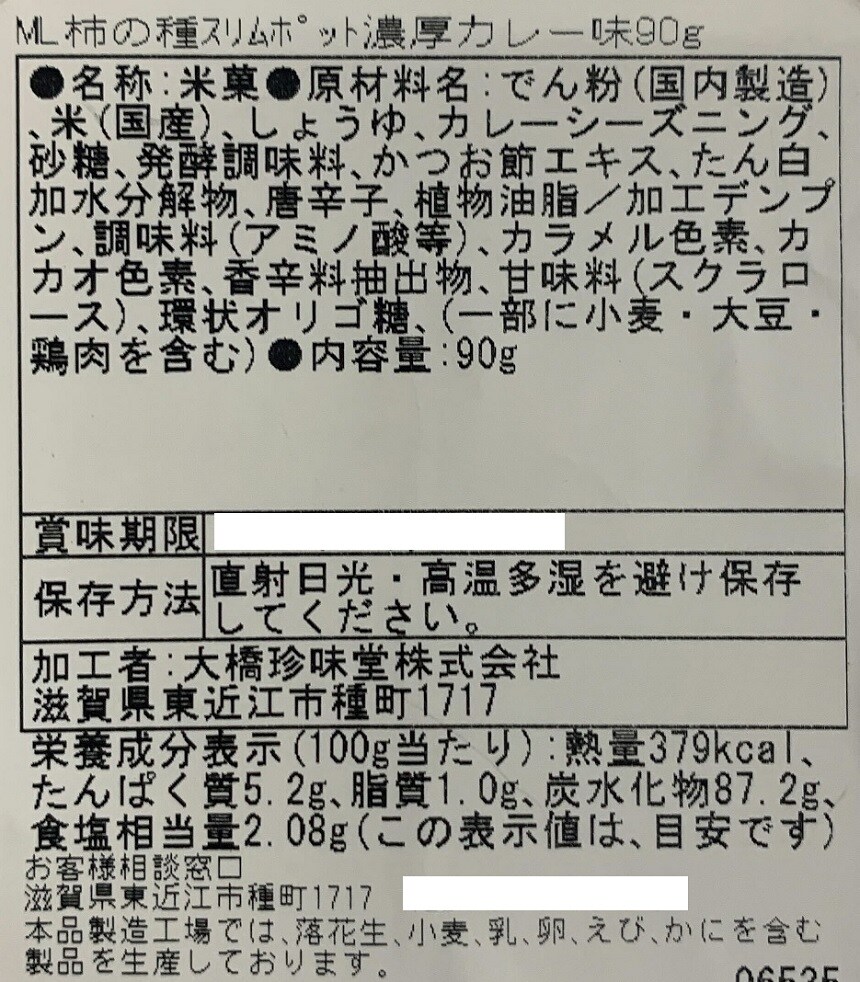 ML柿の種スリムポット濃厚カレー味90g
●名称:米菓●原材料名:でん粉(国内製造)
、米(国産)、しょうゆ、カレーシーズニング、
砂糖、発酵調味料、かつお節エキス、たん白
加水分解物、唐辛子、植物油脂/加工デンプ
ン、調味料(アミノ酸等)、カラメル色素、カ
カオ色素、香辛料抽出物、甘味料(スクラロ
ース)、環状オリゴ糖、(一部に小麦・大豆・
鶏肉を含む)●内容量:90g
賞味期限
保存方法
直射日光・高温多湿を避け保存
してください。
加工者:大橋珍味堂株式会社
滋賀県東近江市種町1717
栄養成分表示(100g当たり):熱量379kcal、
たんぱく質5.2g、脂質1.0g、炭水化物87.2g、
食塩相当量2.08g(この表示値は、目安です)
お客様相談窓口
滋賀県東近江市種町1717
本品製造工場では、落花生、小麦、乳、卵、えび、かにを含む
製品を生産しております。
06535